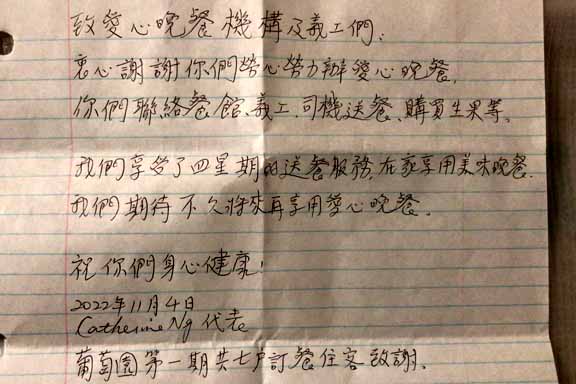 致愛心晚餐機構及義工們:
衷心謝謝你們勞心勞力辦愛心晚餐.
你們聯絡餐館、義工、司機送餐、購買生果等。
我們享受了四星期的送餐服務,在家享用美味晚餐.
我們期待不久將來再享用愛心晚餐。
祝你們身心健康!
2022年11月4日
Catherine Ng 代表
葡萄園第一期共七戶訂餐住客致謝。